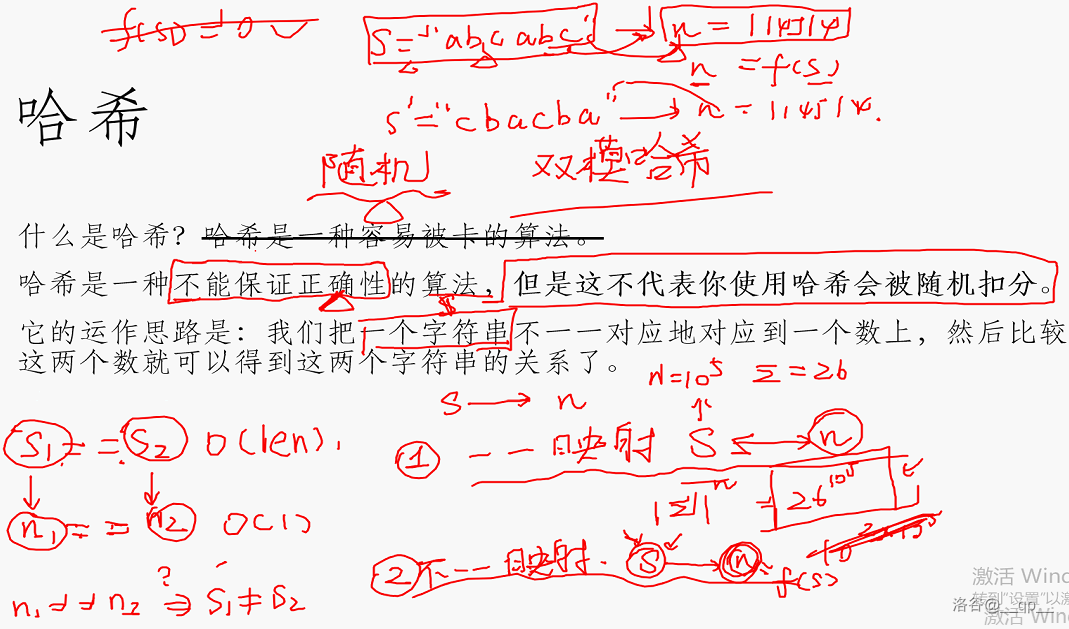 S="abcabc" → n=114514
n=f(s)
哈希
s'="cbacba" → n=114514.
随机 双模哈希
什么是哈希？哈希是一种容易被卡的算法。
哈希是一种不能保证正确性的算法，但是这不代表你使用哈希会被随机扣分。
它的运作思路是：我们把一个字符串不一一对应地对应到一个数上，然后比较
这两个数就可以得到这两个字符串的关系了。
N=10^5 Σ=26
S → n
S1 == S2 O(len).
① 一一映射 S ↔ n
|Σ|^n = 26^10^5
n1 == n2 O(1)
② 不一一映射. S → n f(s)
?
激活 Wind
转到"设置"以激
洛谷@__qp__
激活 Win